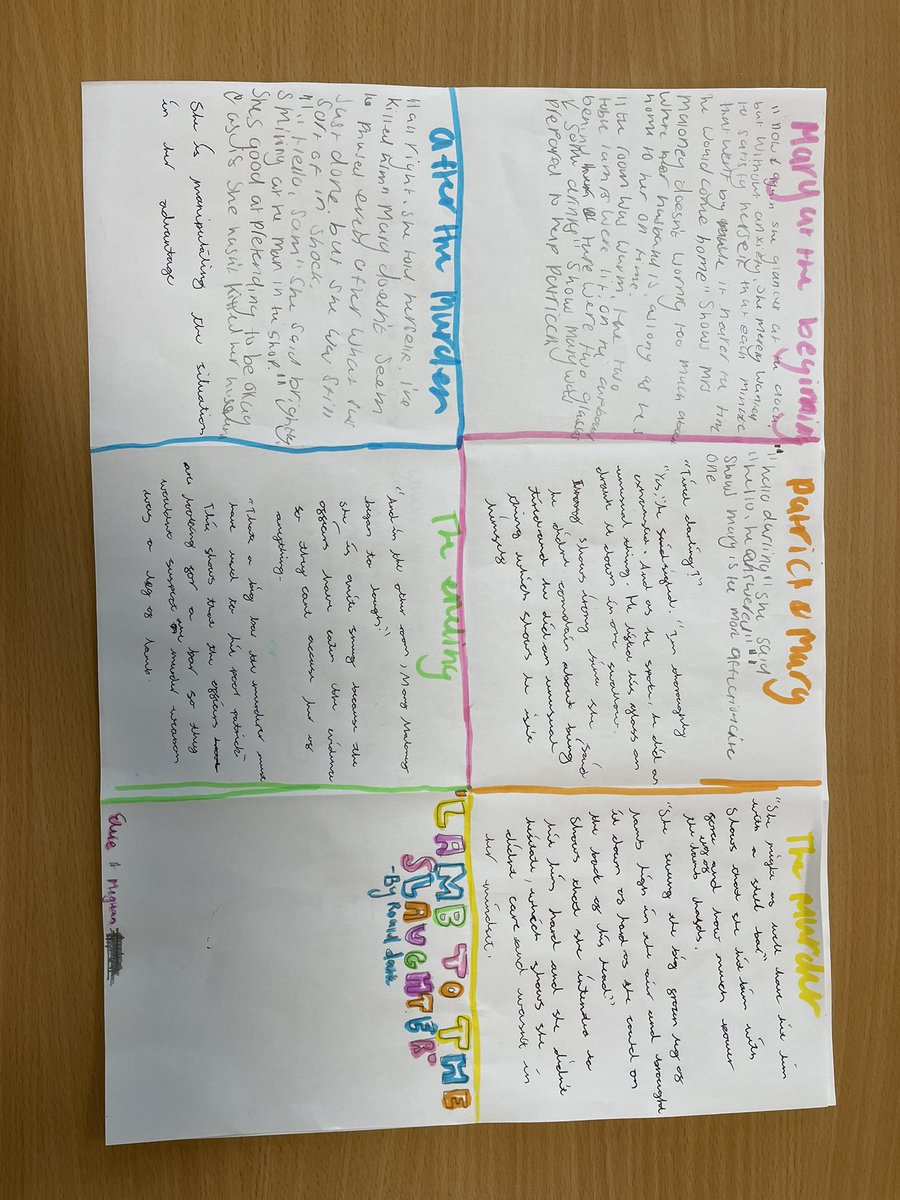 Mary at the beginning
"now again she glanced at the clock,
but without anxiety. She merely wanted
to satisfy herself that each minute
that went by made it nearer the time
he would come home" Shows mrs
Maloney doesn't worry too much about
where her husband is, as long as he's
home to her on time.
"The room was warm, the two
table lamps were lit, on the cupboard
behind there were two glasses
& some drinks" Shows Mary was
prepared to help Patrick
Patrick & Mary
"hello darling" she said
"hello, he answered"
Show mary is the more affectionate
one
"Tired darling?"
"Yes," he sighed, "I'm thoroughly
exhausted. And as he spoke, he did an
unusual thing. He lifted his glass and
drank it down in one swallow.
shows irony since she said
he didnt complain about being
tired and he did an unusual
thing which shows he isnt
himself
The Murder
"She might as well have hit him
with a steel bar"
Shows that she hit him with
force and how much power
the leg of
the lamb holds.
"She swung the big frozen leg of
lamb high in the air and brought
it down as hard as she could on
the back of his head"
Shows that she intended to
hit him hard and she didnt
hesitate, which shows she
didnt care and wasn't in
her mindset.
After the Murder
"All right. She told herself. I've
killed him" Mary doesn't seem
to phased even after what she
just done. but she was still
sort of in shock.
"Hello, Sam" she said brightly,
smiling at the man in the shop"
Shes good at pretending to be okay
& as if she hasn't killed her husband
She is manipulating the situation
in her advantage
The ending
"And in the other room, Mary Maloney
began to laugh"
She is quite smug because the
officers have eaten the evidence
so they cant accuse her of
anything.
"Thats a big bar the murderer must
have used to hit poor patrick"
This shows that the officers
are looking for a bar so they
wouldnt suspect the murder weapon
was a leg of lamb.
"LAMB TO THE
SLAUGHTER"
-By Roald dahl
Elsie & Meghan